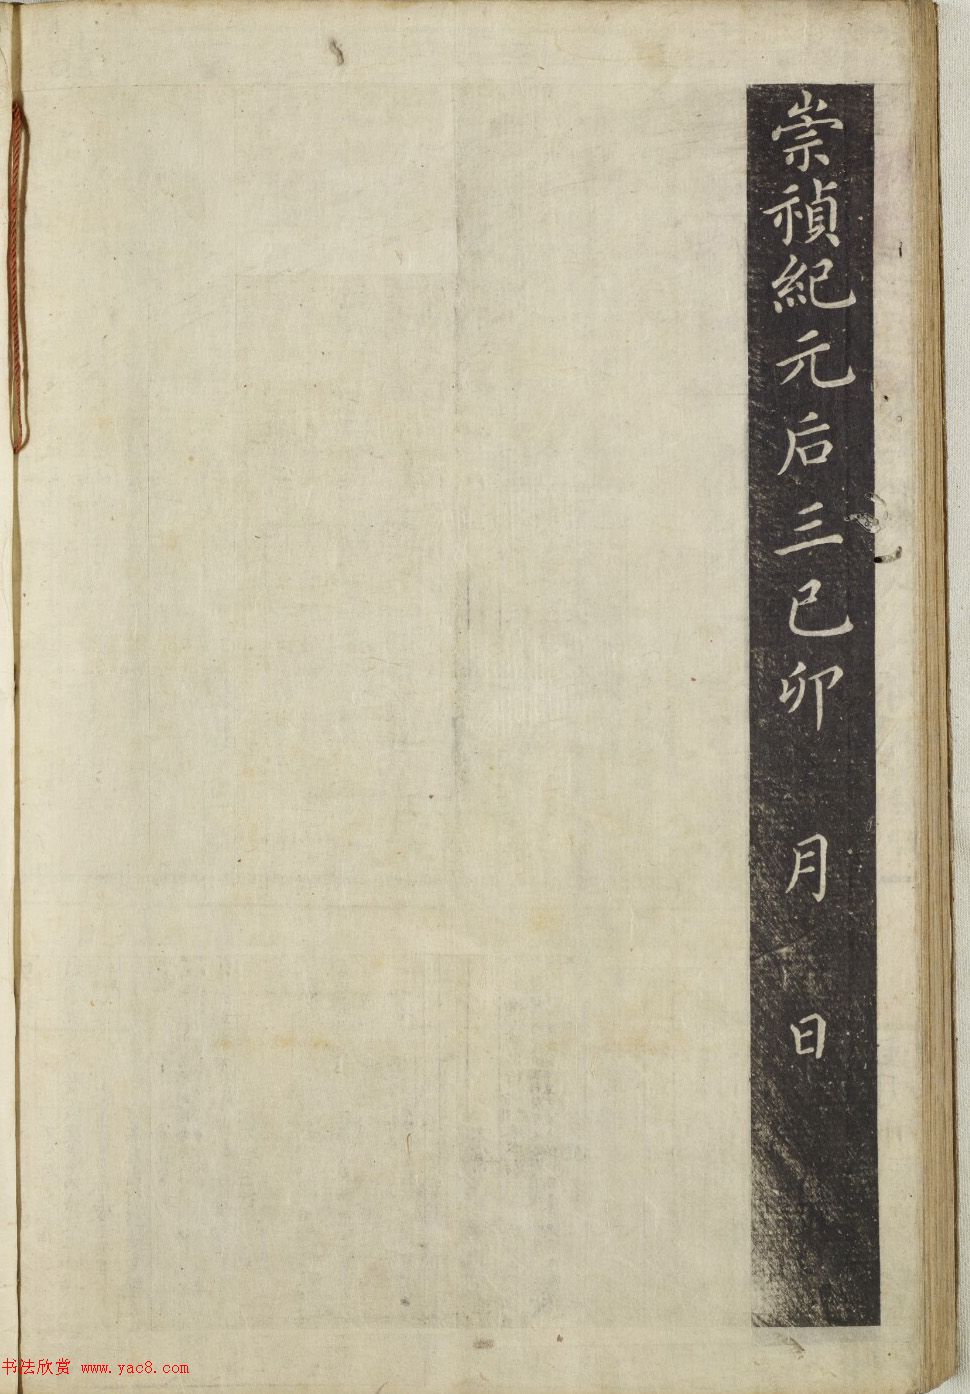 崇禎紀元后三己卯　月　日
书法欣赏 www.yac8.com